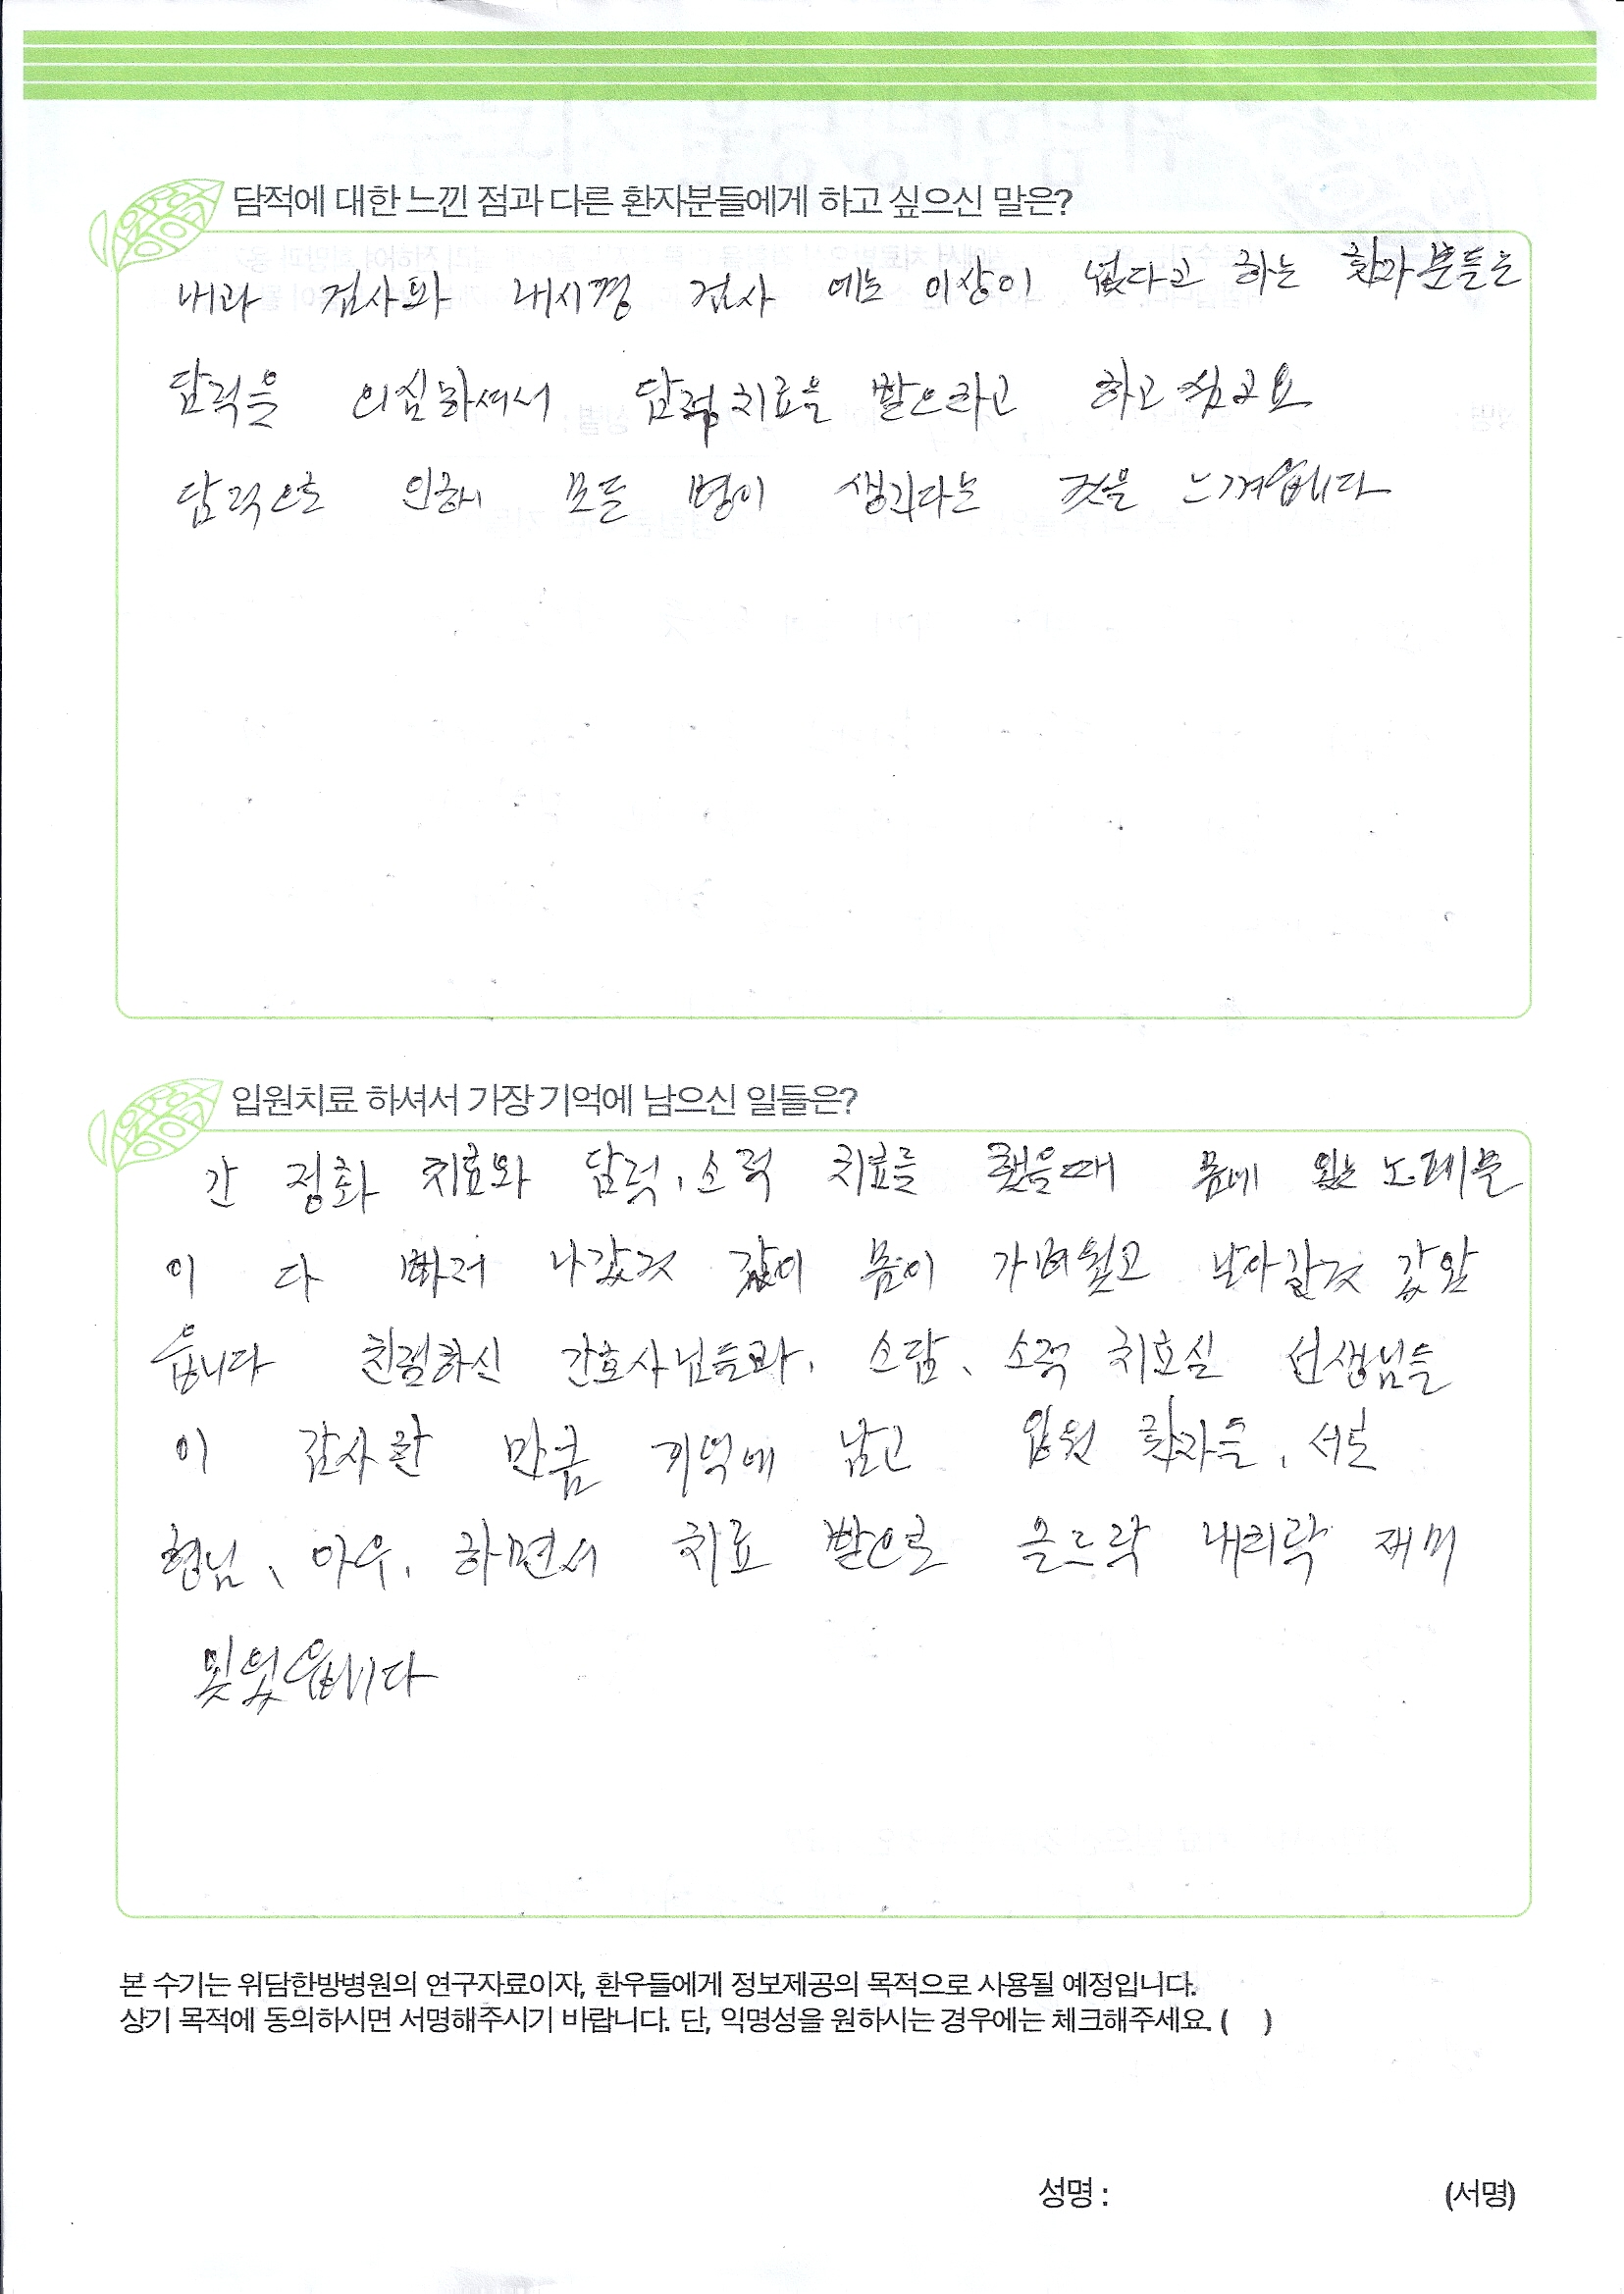 담적에 대한 느낀 점과 다른 환자분들에게 하고 싶으신 말은?
내과 검사와 내시경 검사 에는 이상이 없다고 하는 환자분들은
담적을 의심하셔서 담적치료을 받으라고 하고싶고요
담적으로 인해 모든 병이 생긴다는 것을 느껴읍니다
입원치료 하셔서 가장 기억에 남으신 일들은?
간 정화 치료와 담적, 소적 치료를 했을때 몸에 있는 노폐물
이 다 빠져 나갔것 같이 몸이 가벼웠고 날아갈것 같았
읍니다 친절하신 간호사님들과, 소담, 소적 치료실 선생님들
이 감사한 만큼 기억에 남고 입원 환자들, 서로
형님, 아우, 하면서 치료 받으로 오르락 내리락 재미
있었읍니다
본 수기는 위담한방병원의 연구자료이자, 환우들에게 정보제공의 목적으로 사용될 예정입니다.
상기 목적에 동의하시면 서명해주시기 바랍니다. 단, 익명성을 원하시는 경우에는 체크해주세요. ( )
성명 : (서명)